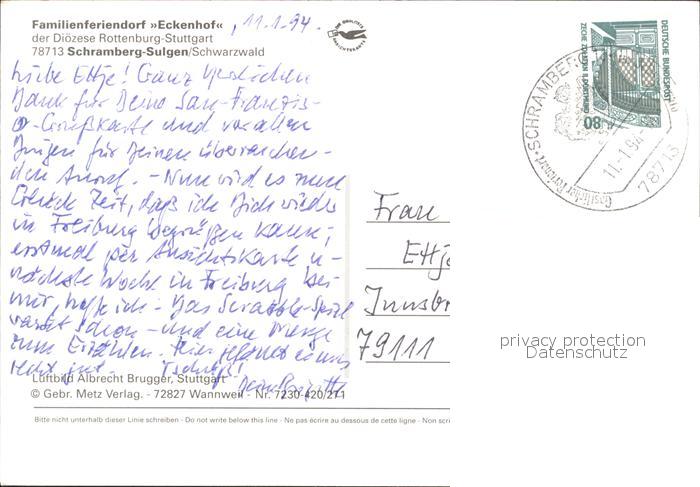 Familienferiendorf »Eckenhof«
der Diözese Rottenburg-Stuttgart
78713 Schramberg-Sulgen/Schwarzwald
, 11.1.94.
Liebe Ettje! Ganz herzlichen
Dank für Deine San-Franzis-
co-Grußkarte und vor allem
für Deinen überraschen-
den Anruf. - Nun wird es
Zeit, daß ich Dich wieder
in Freiburg begrüßen kann;
erstmal per Ansichtskarte u-
nächste Woche in Freiburg bei
mir, hoffe ich. Das Scrabble-Spiel
wartet schon - und eine Menge
zum Erzählen. Hier gefällt es uns
recht gut. Tschüß!
Deine
Luftbild Albrecht Brugger, Stuttgart
© Gebr. Metz Verlag. - 72827 Wannweil - Nr. 7230-420/271
Bitte nicht unterhalb dieser Linie schreiben - Do not write below this line - Ne pas écrire au dessous de cette ligne - Non scri
DEUTSCHE BUNDESPOST
ZECHE ZOLLERN II, DORTMUND
80
SCHRAMBERG
11.-1.94
78713
Frau
Ettje
Innsbr
79111
privacy protection
Datenschutz